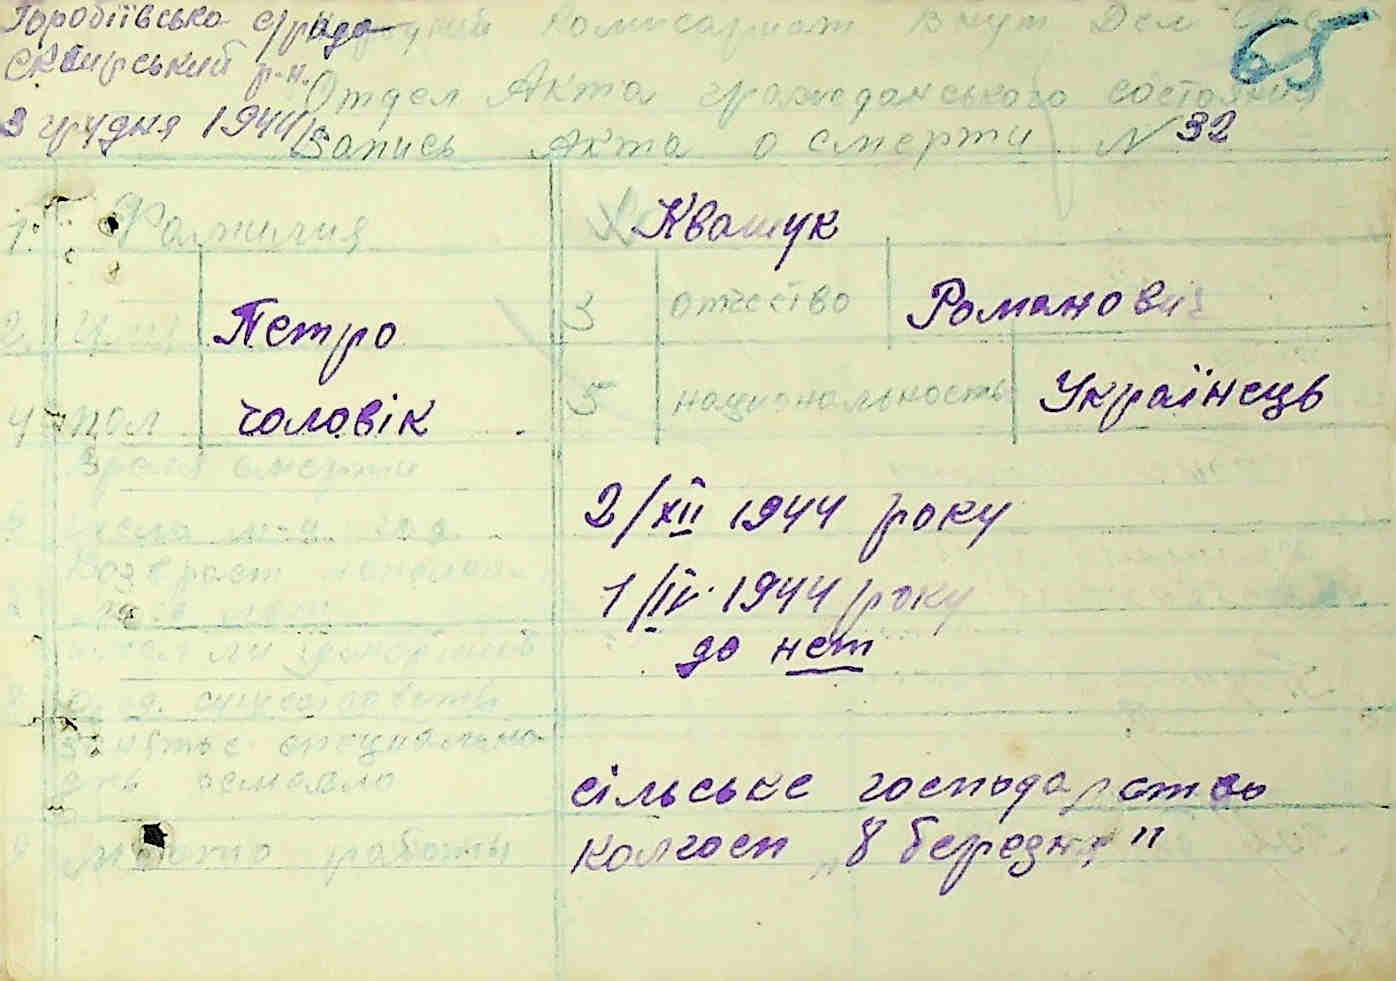 Горобіївська с/рада
Сквирський р-н.
3 грудня 1944
65
Комисариат Внут Дел
Отдел Акта гражданського состояния
Запись Акта о смерти N 32
1. Фамилия Квашук
2. Петро 3 отчество Романович
4 пол чоловік 5 национальность Українець
Время смерти
2/XII 1944 року
Возраст
1/IV 1944 року
до нет
сільське господарство
место работы колгосп "8 березня"